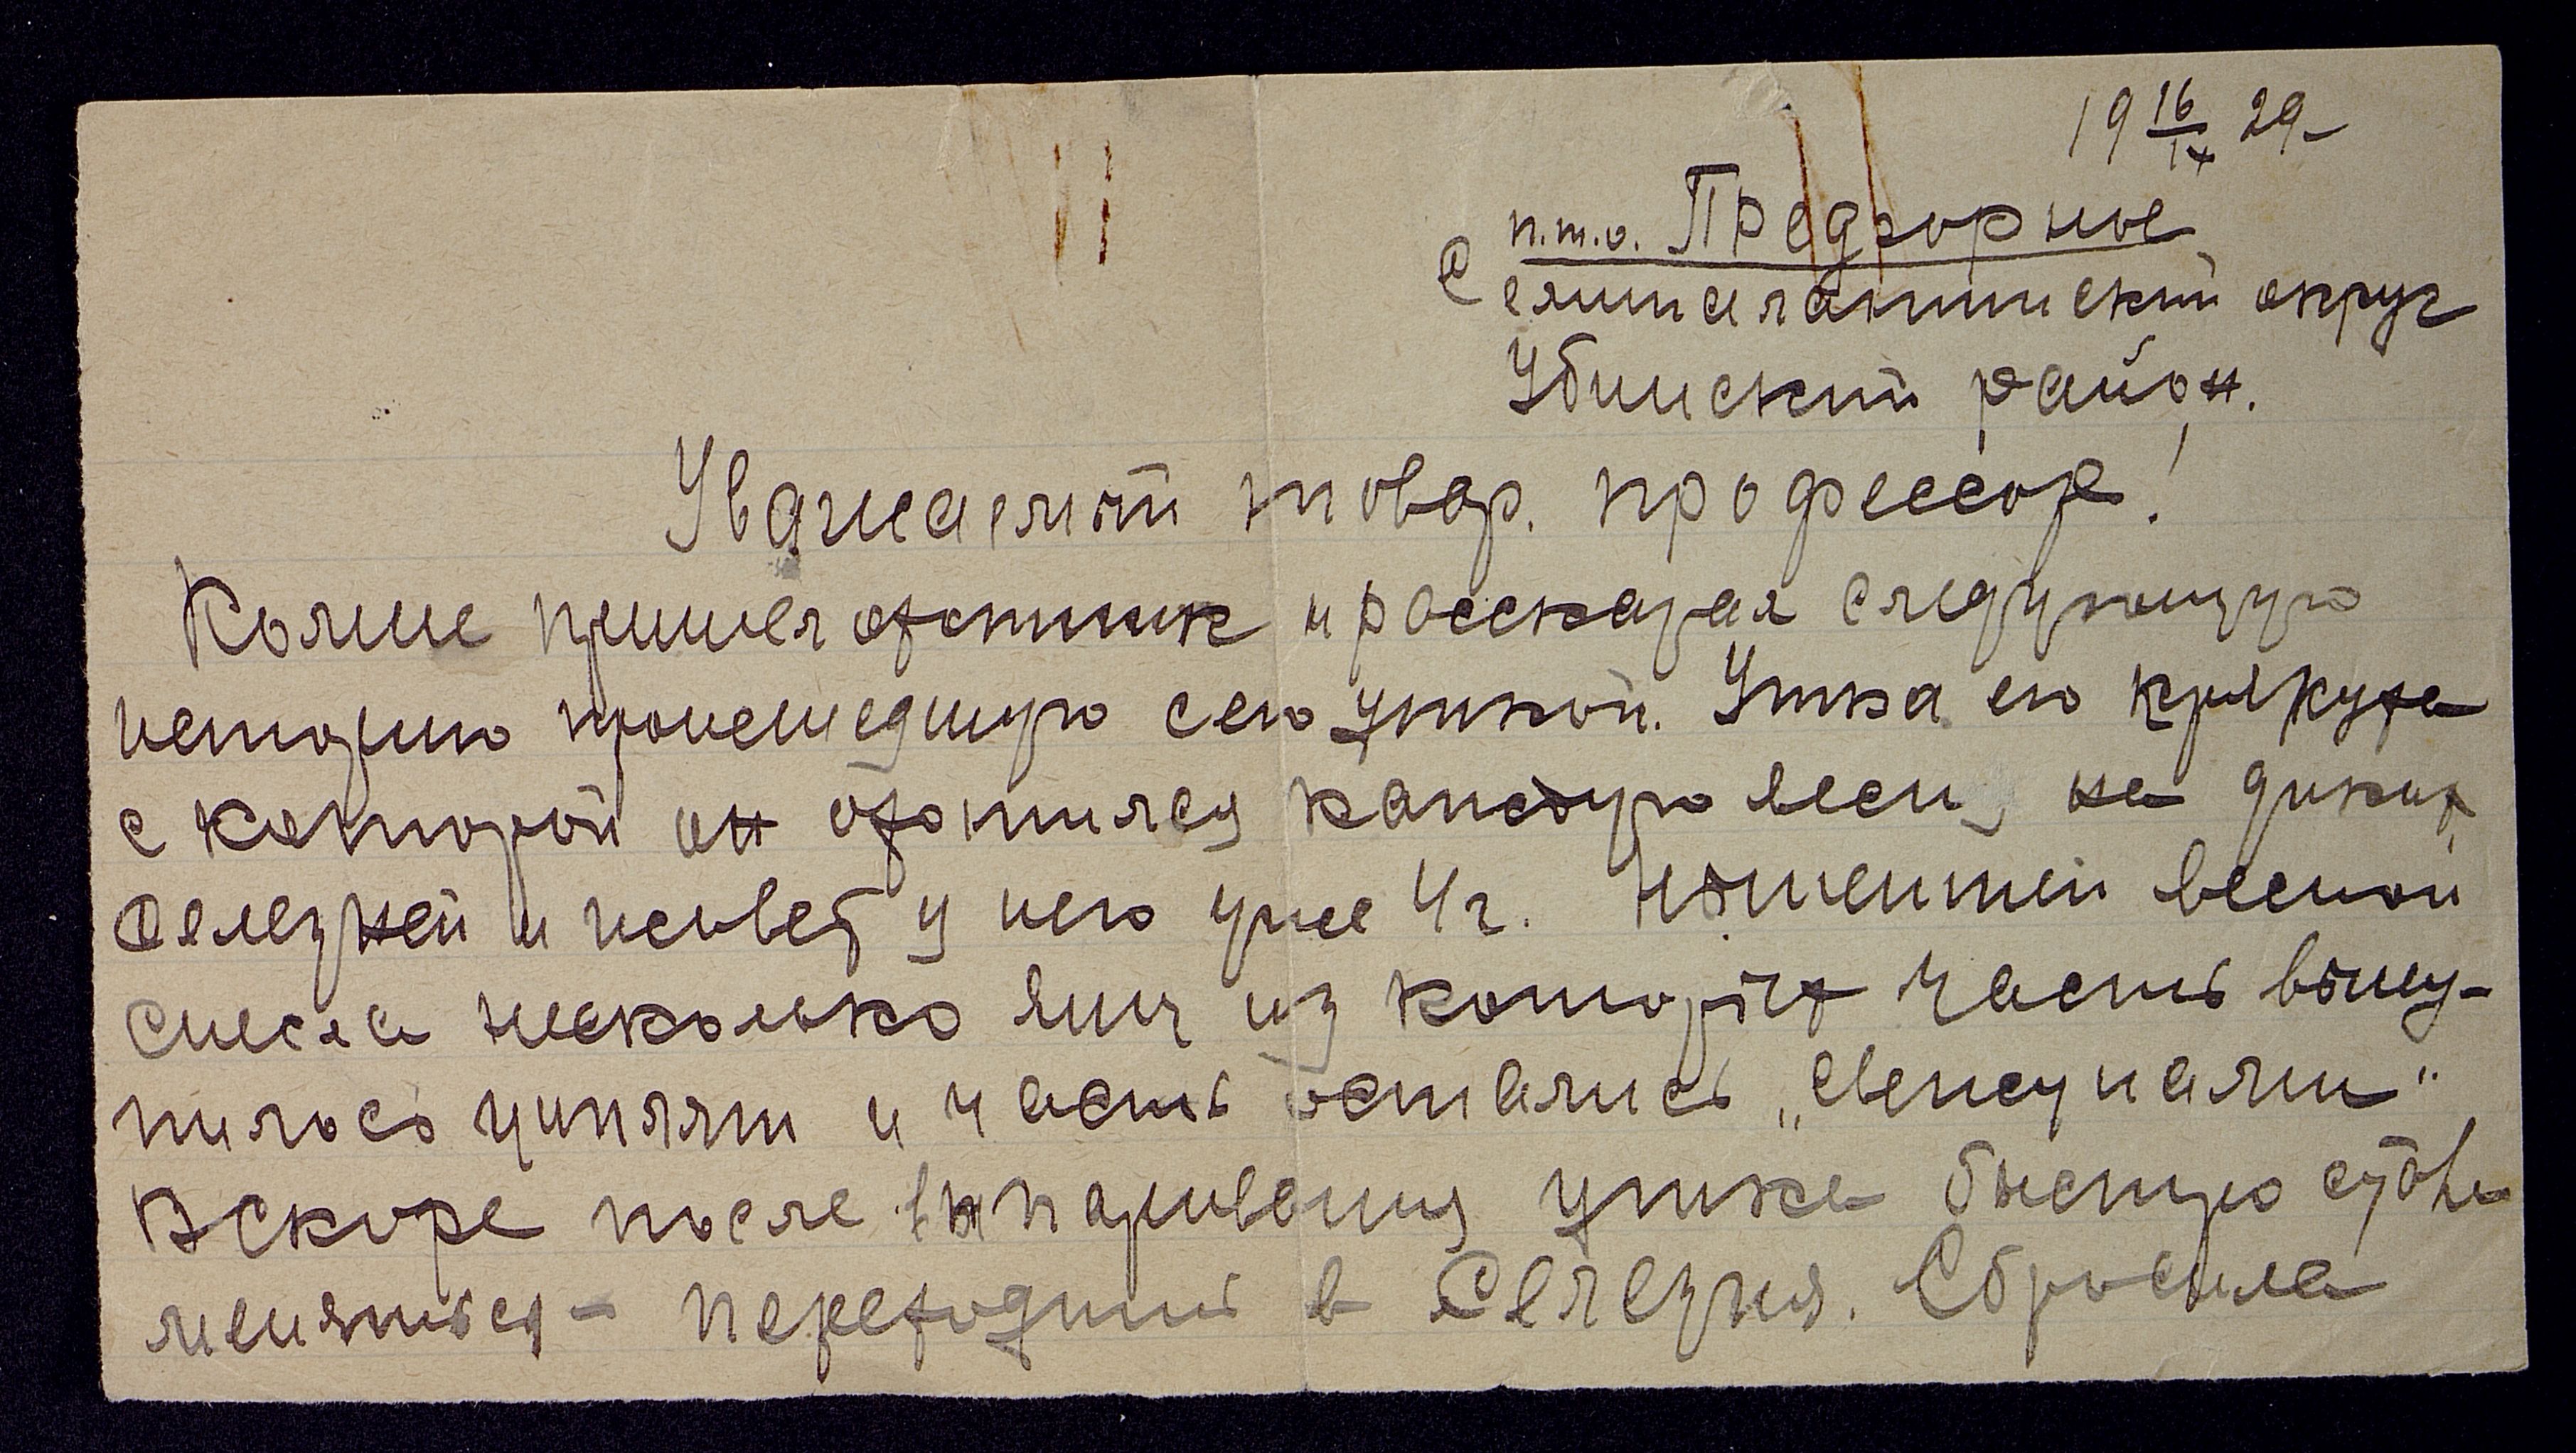 19 16/IX 29
п.т.о. Предгорное
Семипалатинский округ
Убинский район.
Уважаемый товар. профессор!
Комне пришел охотник и рассказал следующую
историю происшедшую сего уткой. Утка его крякуха
с которой он охотился каждую весну на диких
Селезней и живет у него уже 4г. Нынешней весной
снесла несколько яиц из которых часть вылу-
пилось циплят и часть остались „свежунами"
Вскоре после выпаривания утка быстро стала
меняться - переходить в Селезня. Сбросила